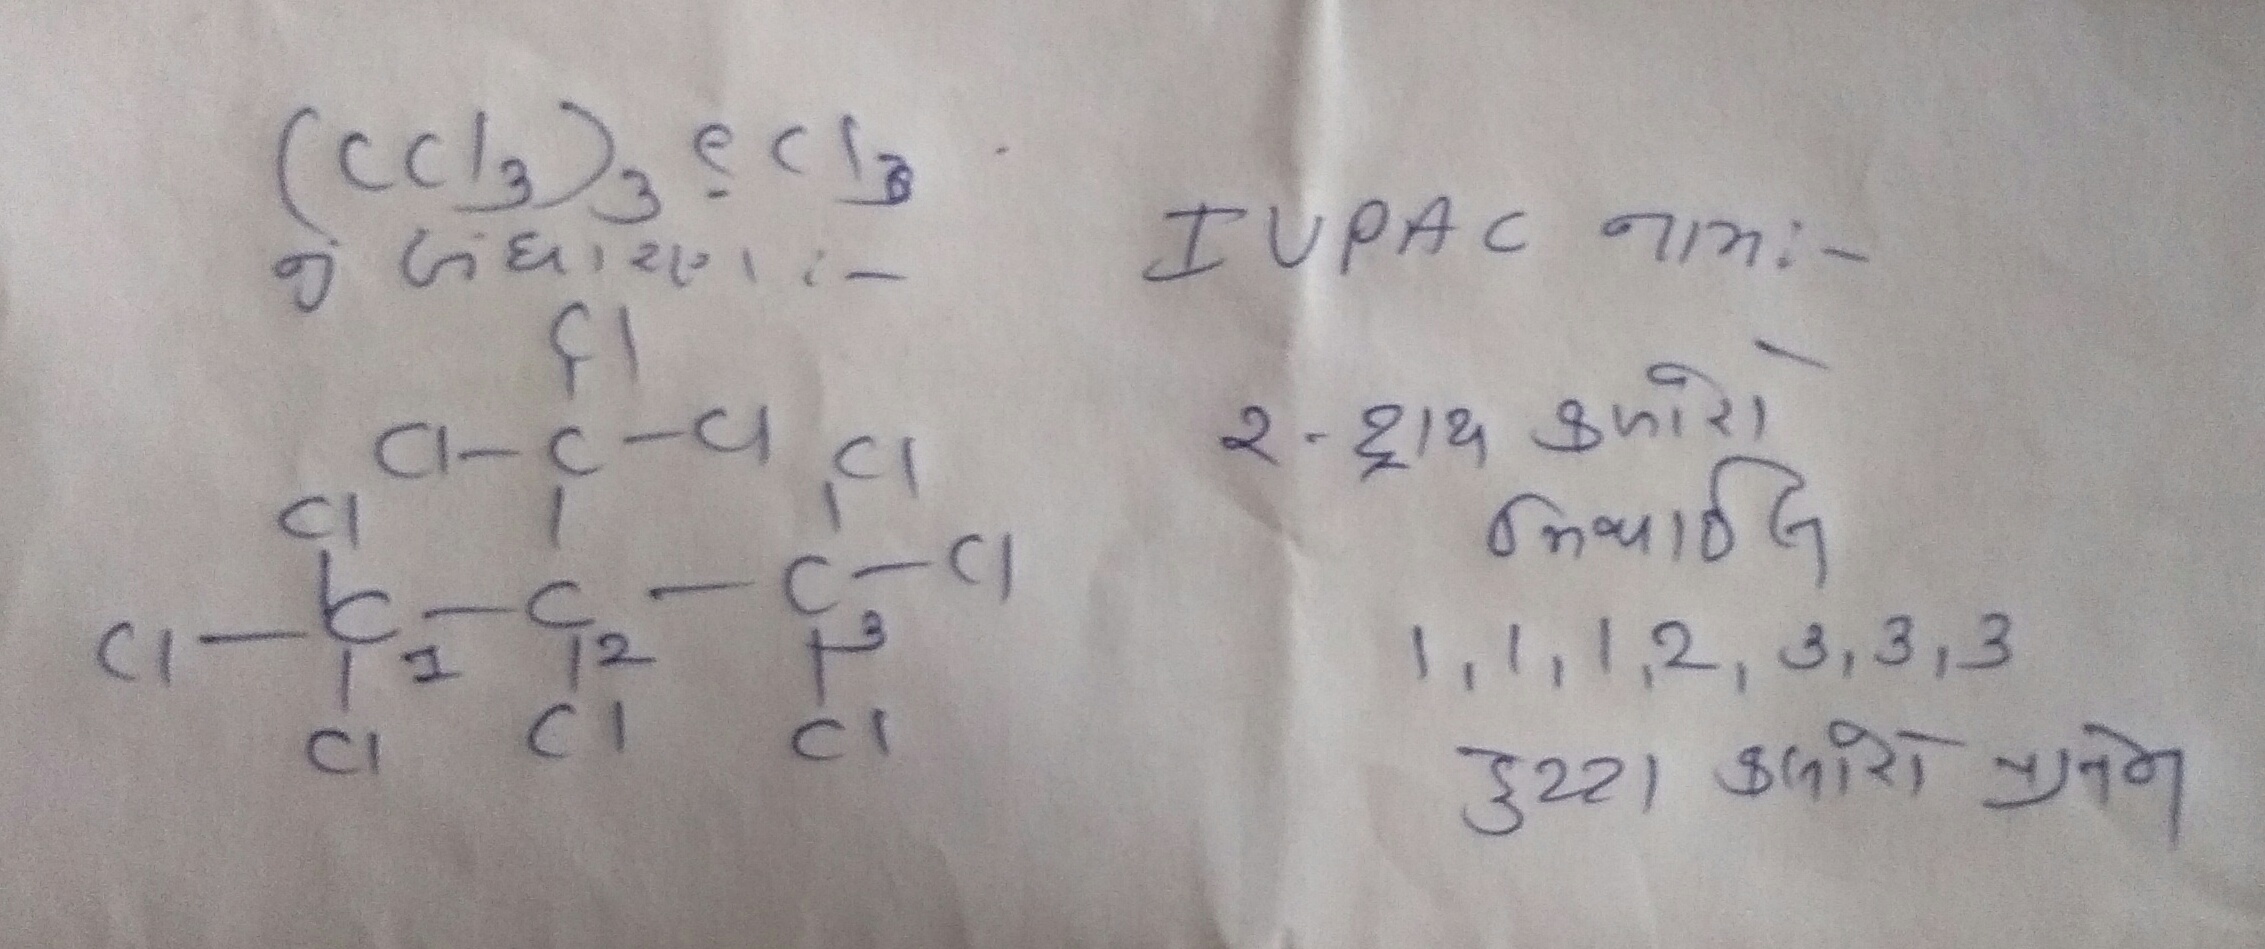 (CCl3)3 CCl3
નું બંધારણ :-
Cl
Cl-C-Cl Cl
Cl
Cl-C1-C2-C3-Cl
Cl Cl Cl
IUPAC નામ:-
૨-ટ્રાય ક્લોરો
મિથાઈલ
1,1,1,2,3,3,3
હેપ્ટા ક્લોરો પ્રોપેન